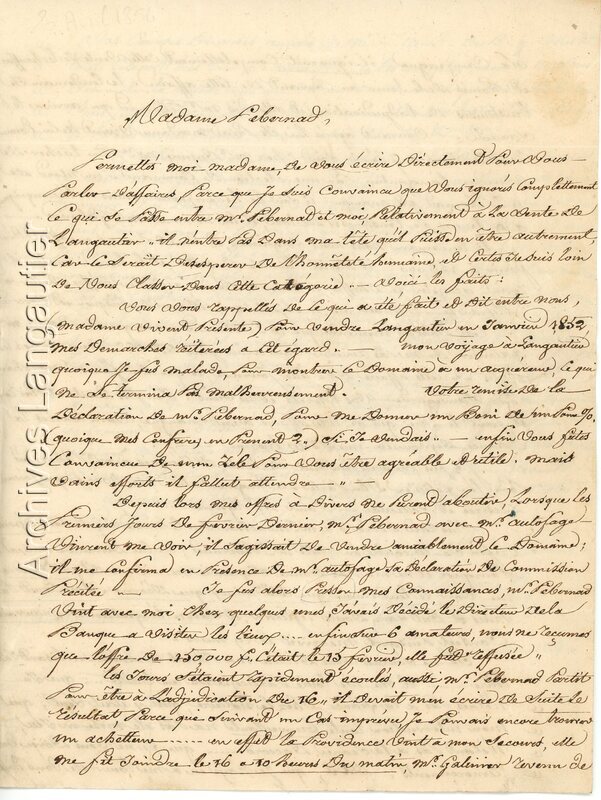 Madame Pebernad,
Permettés moi madame, De vous écrire Directement Pour vous
Parler D'affaires, Parce que Je suis Convaincu que vous ignorés Complettement
Ce qui se Passe entre mr. Pebernad et moi, Relativement à La vente de
Langautier „ il n'entre Pas Dans ma tête qu'il Puisse en être autrement,
Car ce serait Désesperer De l'honnêteté humaine, et Certes Je suis loin
De vous Classer Dans cette Catégorie .. Voici les faits :
Vous vous rappellés De ce qui a été fait et Dit entre nous,
(madame vivent Présente) Pour vendre Langautier en Janvier 1852,
mes Demarches réiterées a cet égard. mon voyage à Langautier
quoique Je fus malade, Pour montrer le Domaine à un acquereur, ce qui
ne se termina Pas malheureusement. Votre remise de la
Déclaration De mr. Pebernad, Pour me Donner un Boni De un Pour %,
(quoique mes Confreres en Prennent 2.) Si Je vendais .. enfin vous futes
Convaincue De mon Zele Pour vous être agréable et utile. mais
vains efforts il fallut attendre „
Depuis lors mes offres à Divers ne Purent aboutir, Lorsque les
Premiers Jours de fevrier Dernier, mr. Pebernad avec mr. autofage
vinrent me voir, il s'agissait De vendre amiablement le Domaine ;
il me Confirma en Presence De mr. autofage sa Déclaration De Commission
Précitée .. Je fus alors Presser mes Connaissances, mr. Pebernad
vint avec moi Chez quelques unes, J'avais Décidé le Directeur De la
Banque a visiter les lieux .... enfin sur 6 amateurs, nous ne reçumes
que l'offre De 150 000 f. C'était le 15 fevrier, elle fut reffusée „
les Jours s'étaient rapidement écoulés, aussi mr. Pebernad Partit
Pour être à L'adjudication Du 16 „ il Devait m'en écrire De Suite le
résultat, Parce que suivant un Cas imprevu Je Pouvais encore trouver
un achetteur ........ en effet la Providence vint à mon Secours, elle
me fit Joindre le 16 a 10 heures Du matin, mr. Galinier revenu de
Archives Langautier